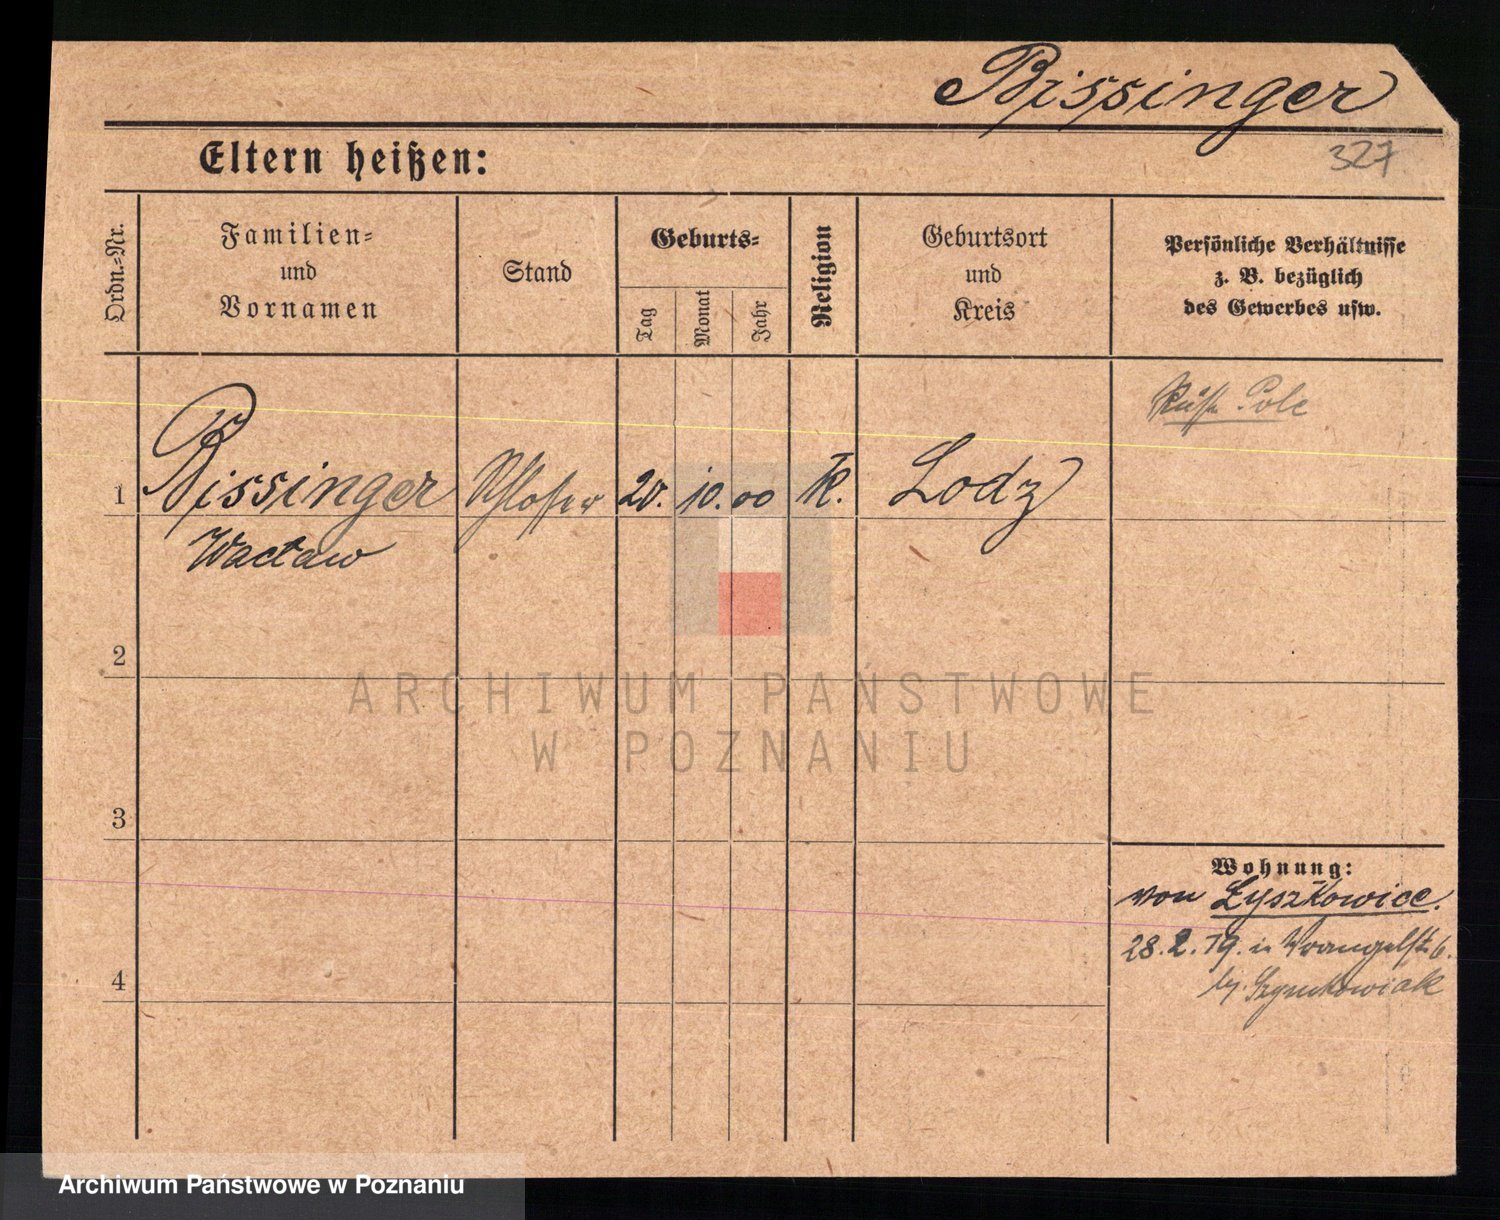 Bissinger
327
Eltern heißen:
Ordn.=Nr.
Familien=
und
Vornamen
Stand
Geburts=
Tag
Monat
Jahr
Religion
Geburtsort
und
Kreis
Persönliche Verhältnisse
z. B. bezüglich
des Gewerbes usw.
Russ. Pole
1 Bissinger Schlosser 20. 10. 00 K. Lodz
Wacław
2
3
4
ARCHIWUM PAŃSTWOWE
W POZNANIU
Wohnung:
von Łyszkowice.
28.2.19. in Wrangelstr. 6.
bj. Szymkowiak
Archiwum Państwowe w Poznaniu